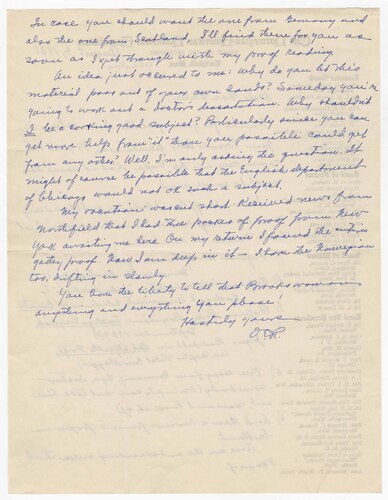 In case you should want the one from Germany and
also the one from Scotland, I'll find them for you as
soon as I get through with my proof reading.
An idea just occurred to me: Why do you let this
material pass out of your own hands? Someday you're
going to work out a Doctor's dessertation. Why shouldn't
I be a corking good subject? Particularly since you can
get more help from "it" than you possible could get
from any other? Well, I'm only asking the question. It
might of course be possible that the English department
of Chicago would not ok such a subject.
My vacation was cut short. Received news from
Northfield that I had three packes of proof from New
York awaiting me here. On my return I found the entire
galley proof. Now I am deep in it – I have the Norwegian
too, drifting in slowly.
You have the liberty to tell that Brooks woman
anything and everything you please!
Hastily yours
OER